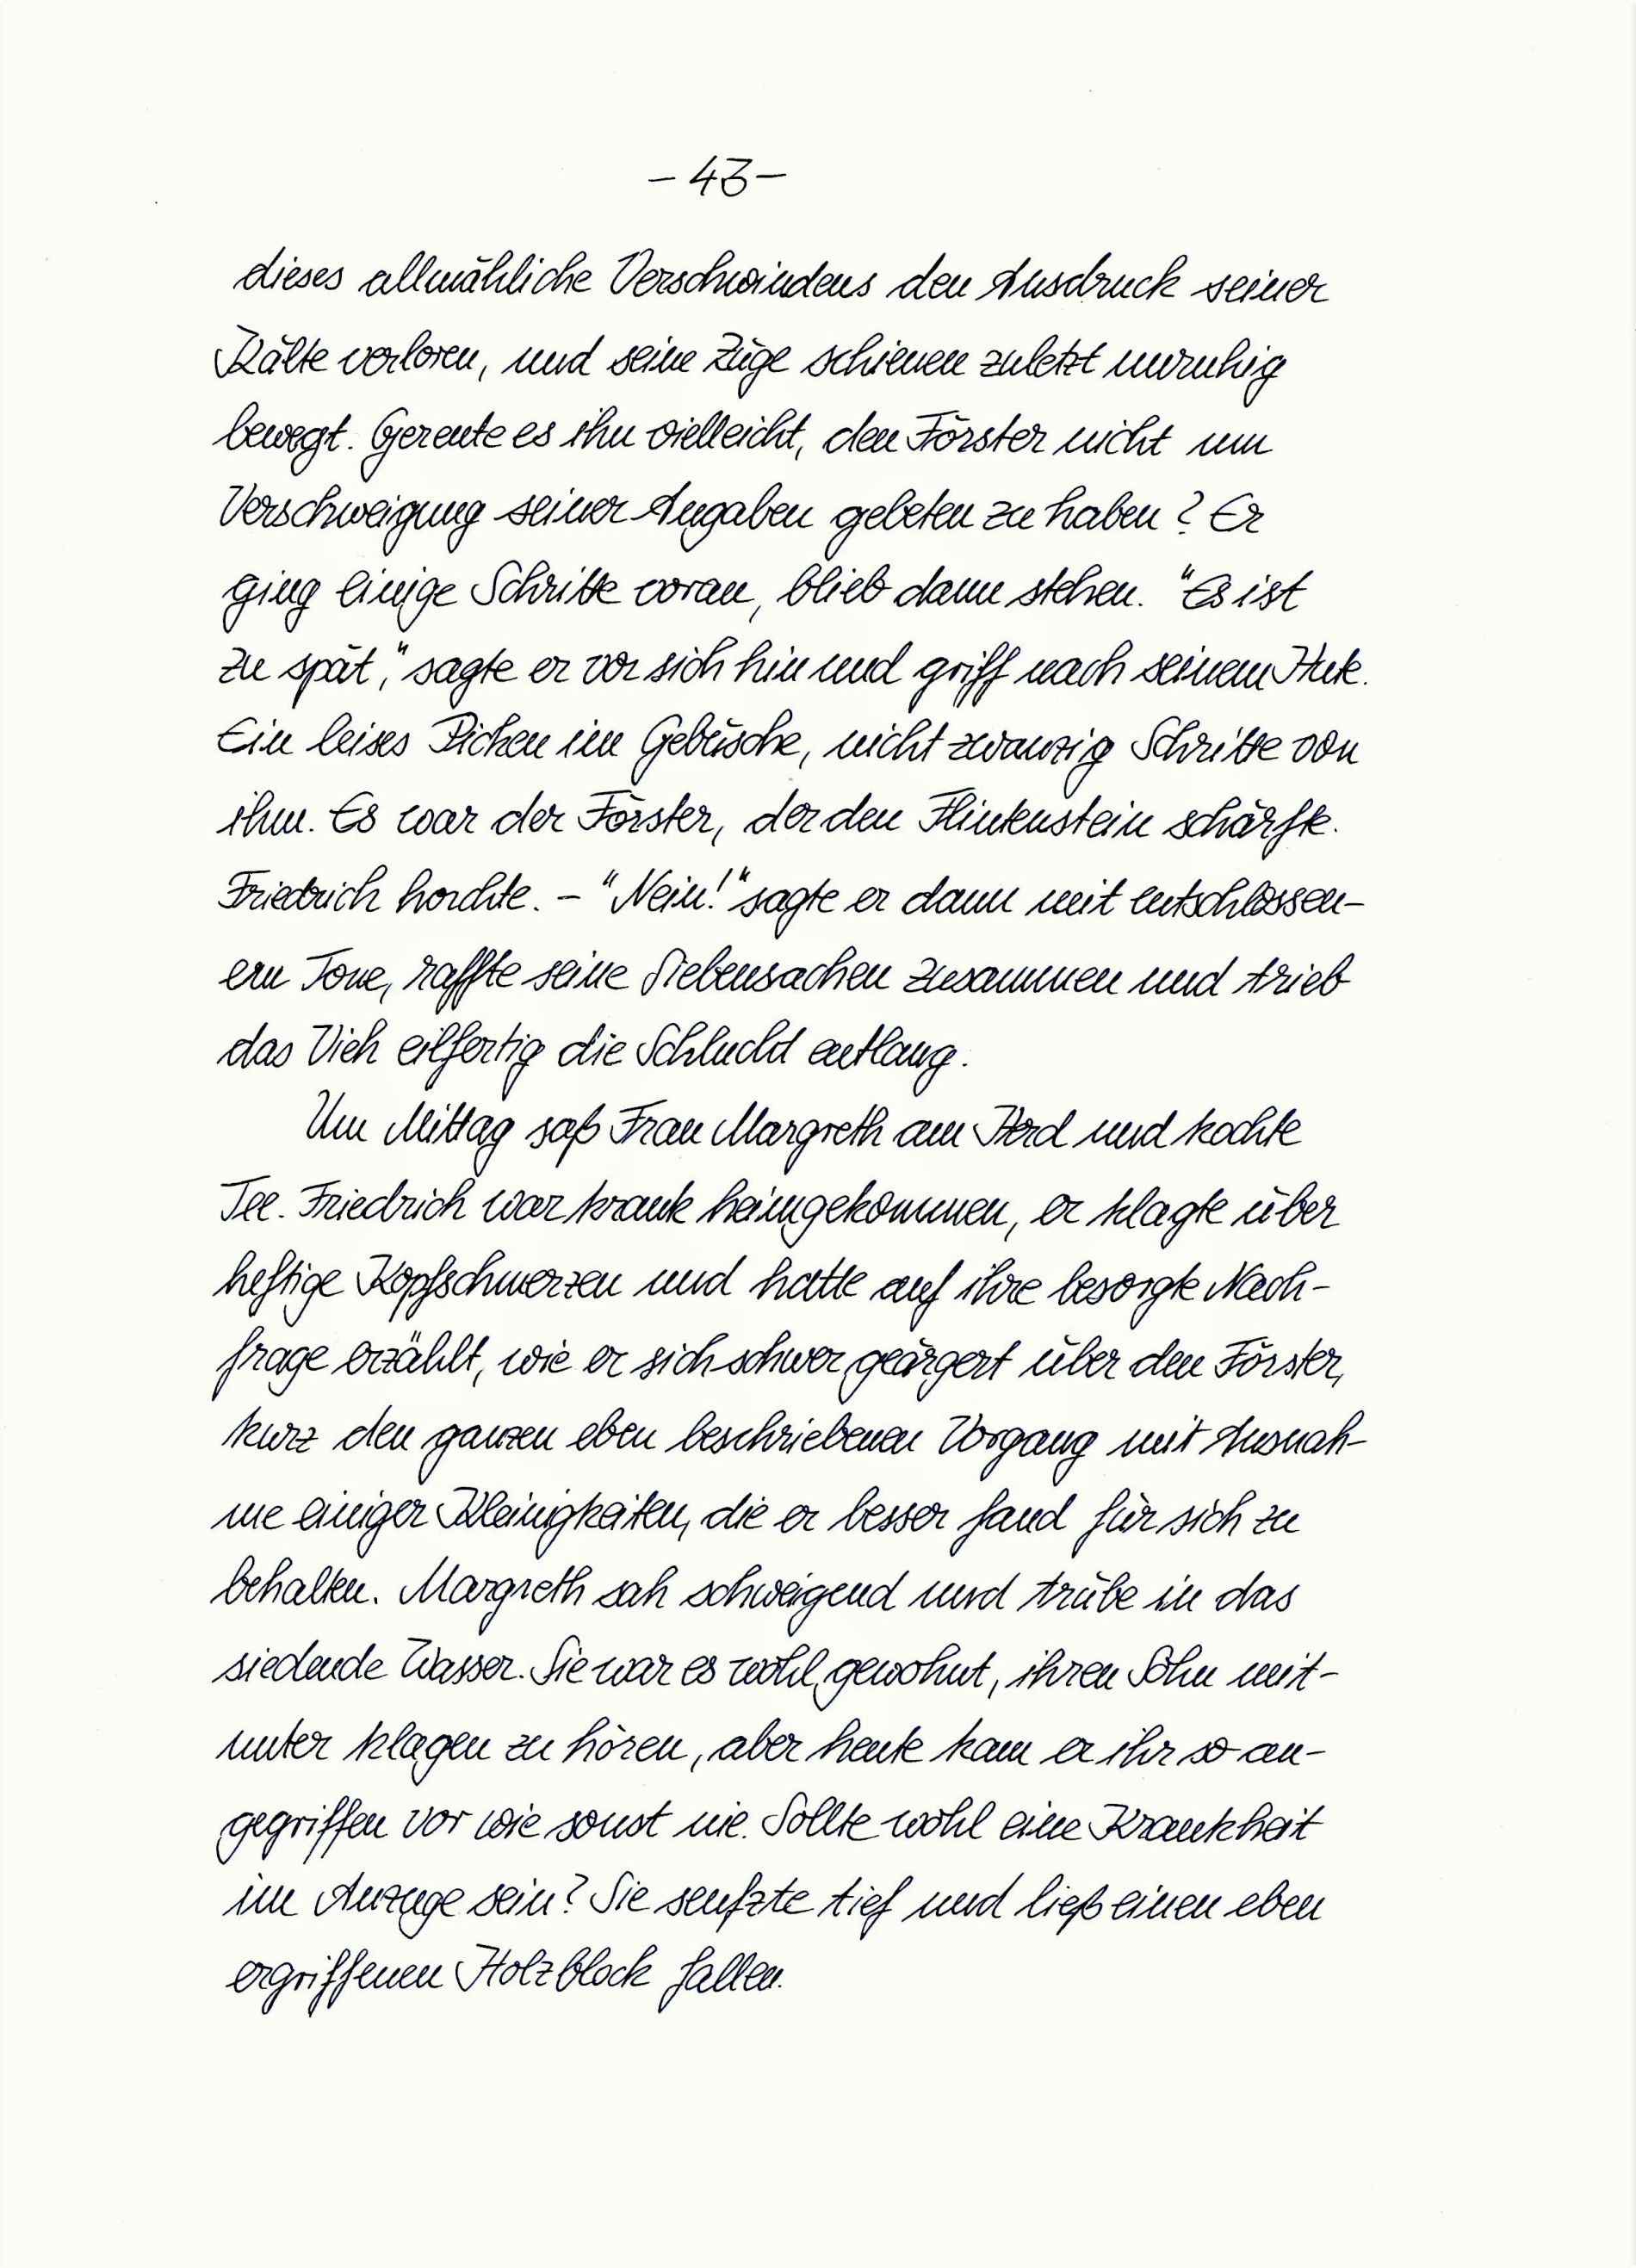 – 43 –
dieses allmähliche Verschwindens den Ausdruck seiner
Kälte verloren, und seine Züge schienen zuletzt unruhig
bewegt. Gereute es ihn vielleicht, den Förster nicht um
Verschweigung seiner Angaben gebeten zu haben? Er
ging einige Schritte voran, blieb dann stehen. "Es ist
zu spät," sagte er vor sich hin und griff nach seinem Hute.
Ein leises Picken im Gebüsche, nicht zwanzig Schritte von
ihm. Es war der Förster, der den Flintenstein schärfte.
Friedrich horchte. – "Nein!" sagte er dann mit entschlossen-
em Tone, raffte seine Siebensachen zusammen und trieb
das Vieh eilfertig die Schlucht entlang.
Um Mittag saß Frau Margreth am Herd und kochte
Tee. Friedrich war krank heimgekommen, er klagte über
heftige Kopfschmerzen und hatte auf ihre besorgte Nach-
frage erzählt, wie er sich schwer geärgert über den Förster,
kurz den ganzen eben beschriebenen Vorgang mit Ausnah-
me einiger Kleinigkeiten, die er besser fand für sich zu
behalten. Margreth sah schweigend und trübe in das
siedende Wasser. Sie war es wohl gewohnt, ihren Sohn mit-
unter klagen zu hören, aber heute kam er ihr so an-
gegriffen vor wie sonst nie. Sollte wohl eine Krankheit
im Anzuge sein? Sie seufzte tief und ließ einen eben
ergriffenen Holzblock fallen.